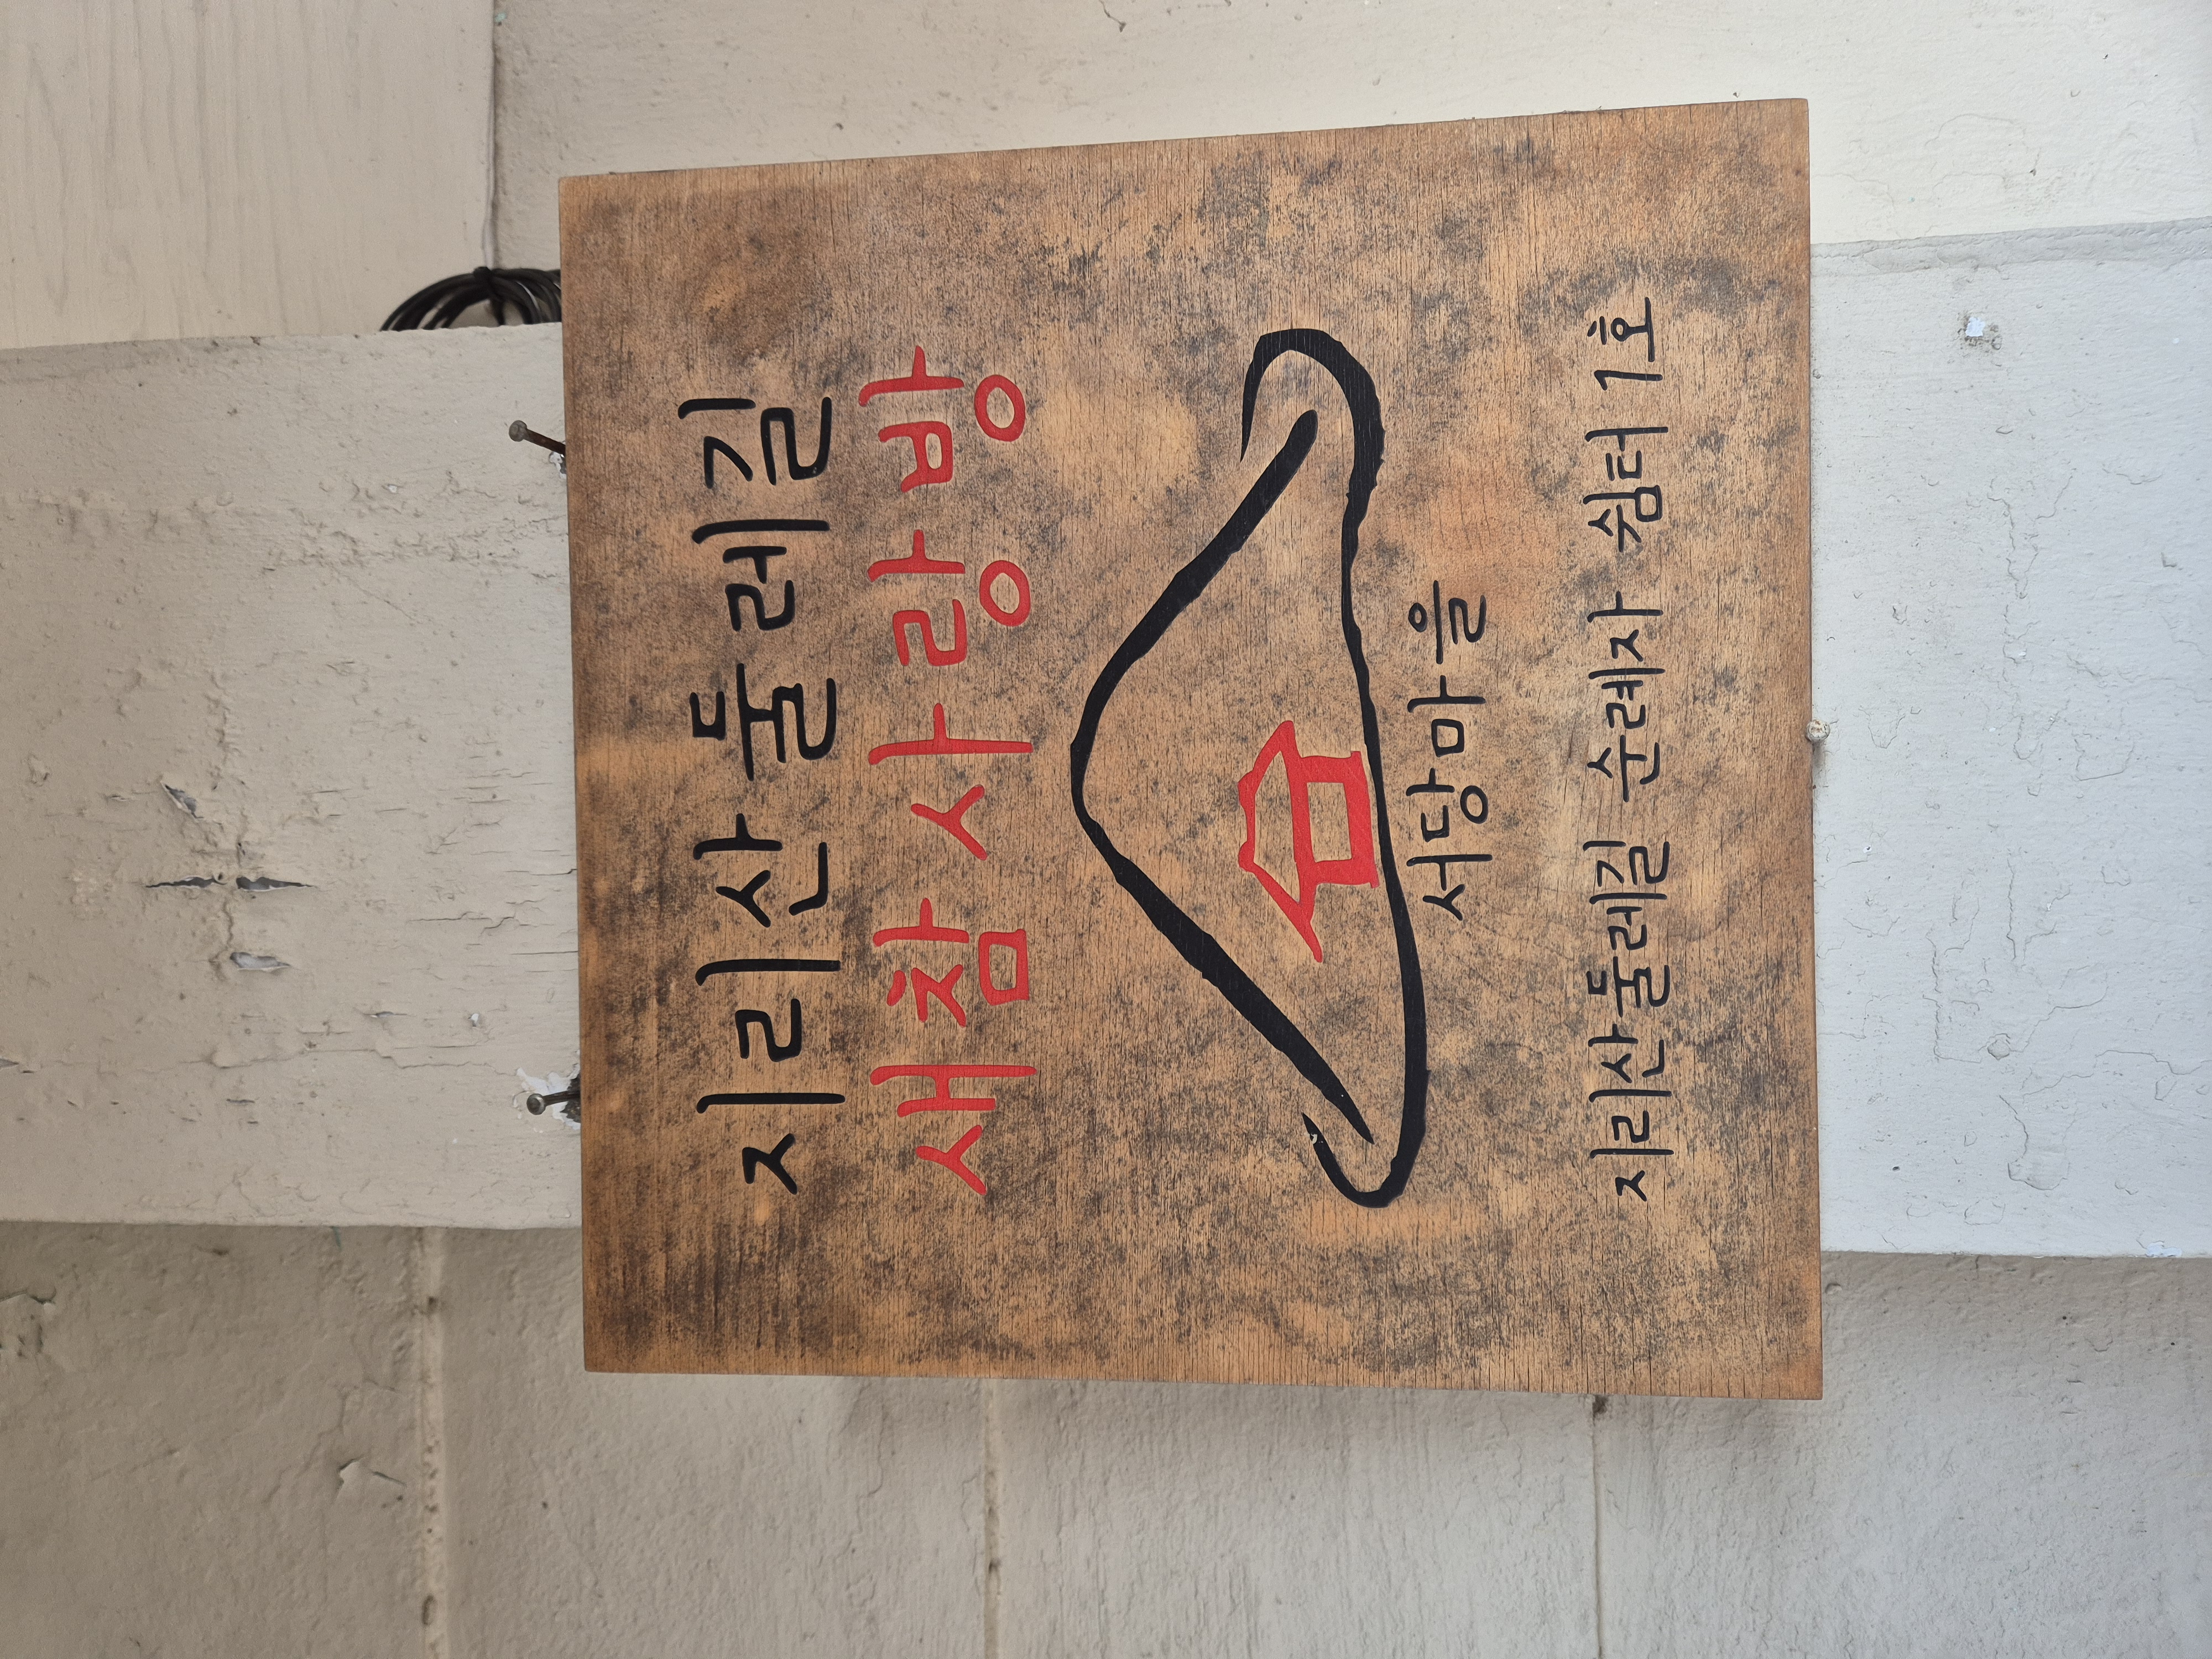 지리산둘레길
새참 사랑방
서당마을
지리산둘레길 순례자 쉼터 1호